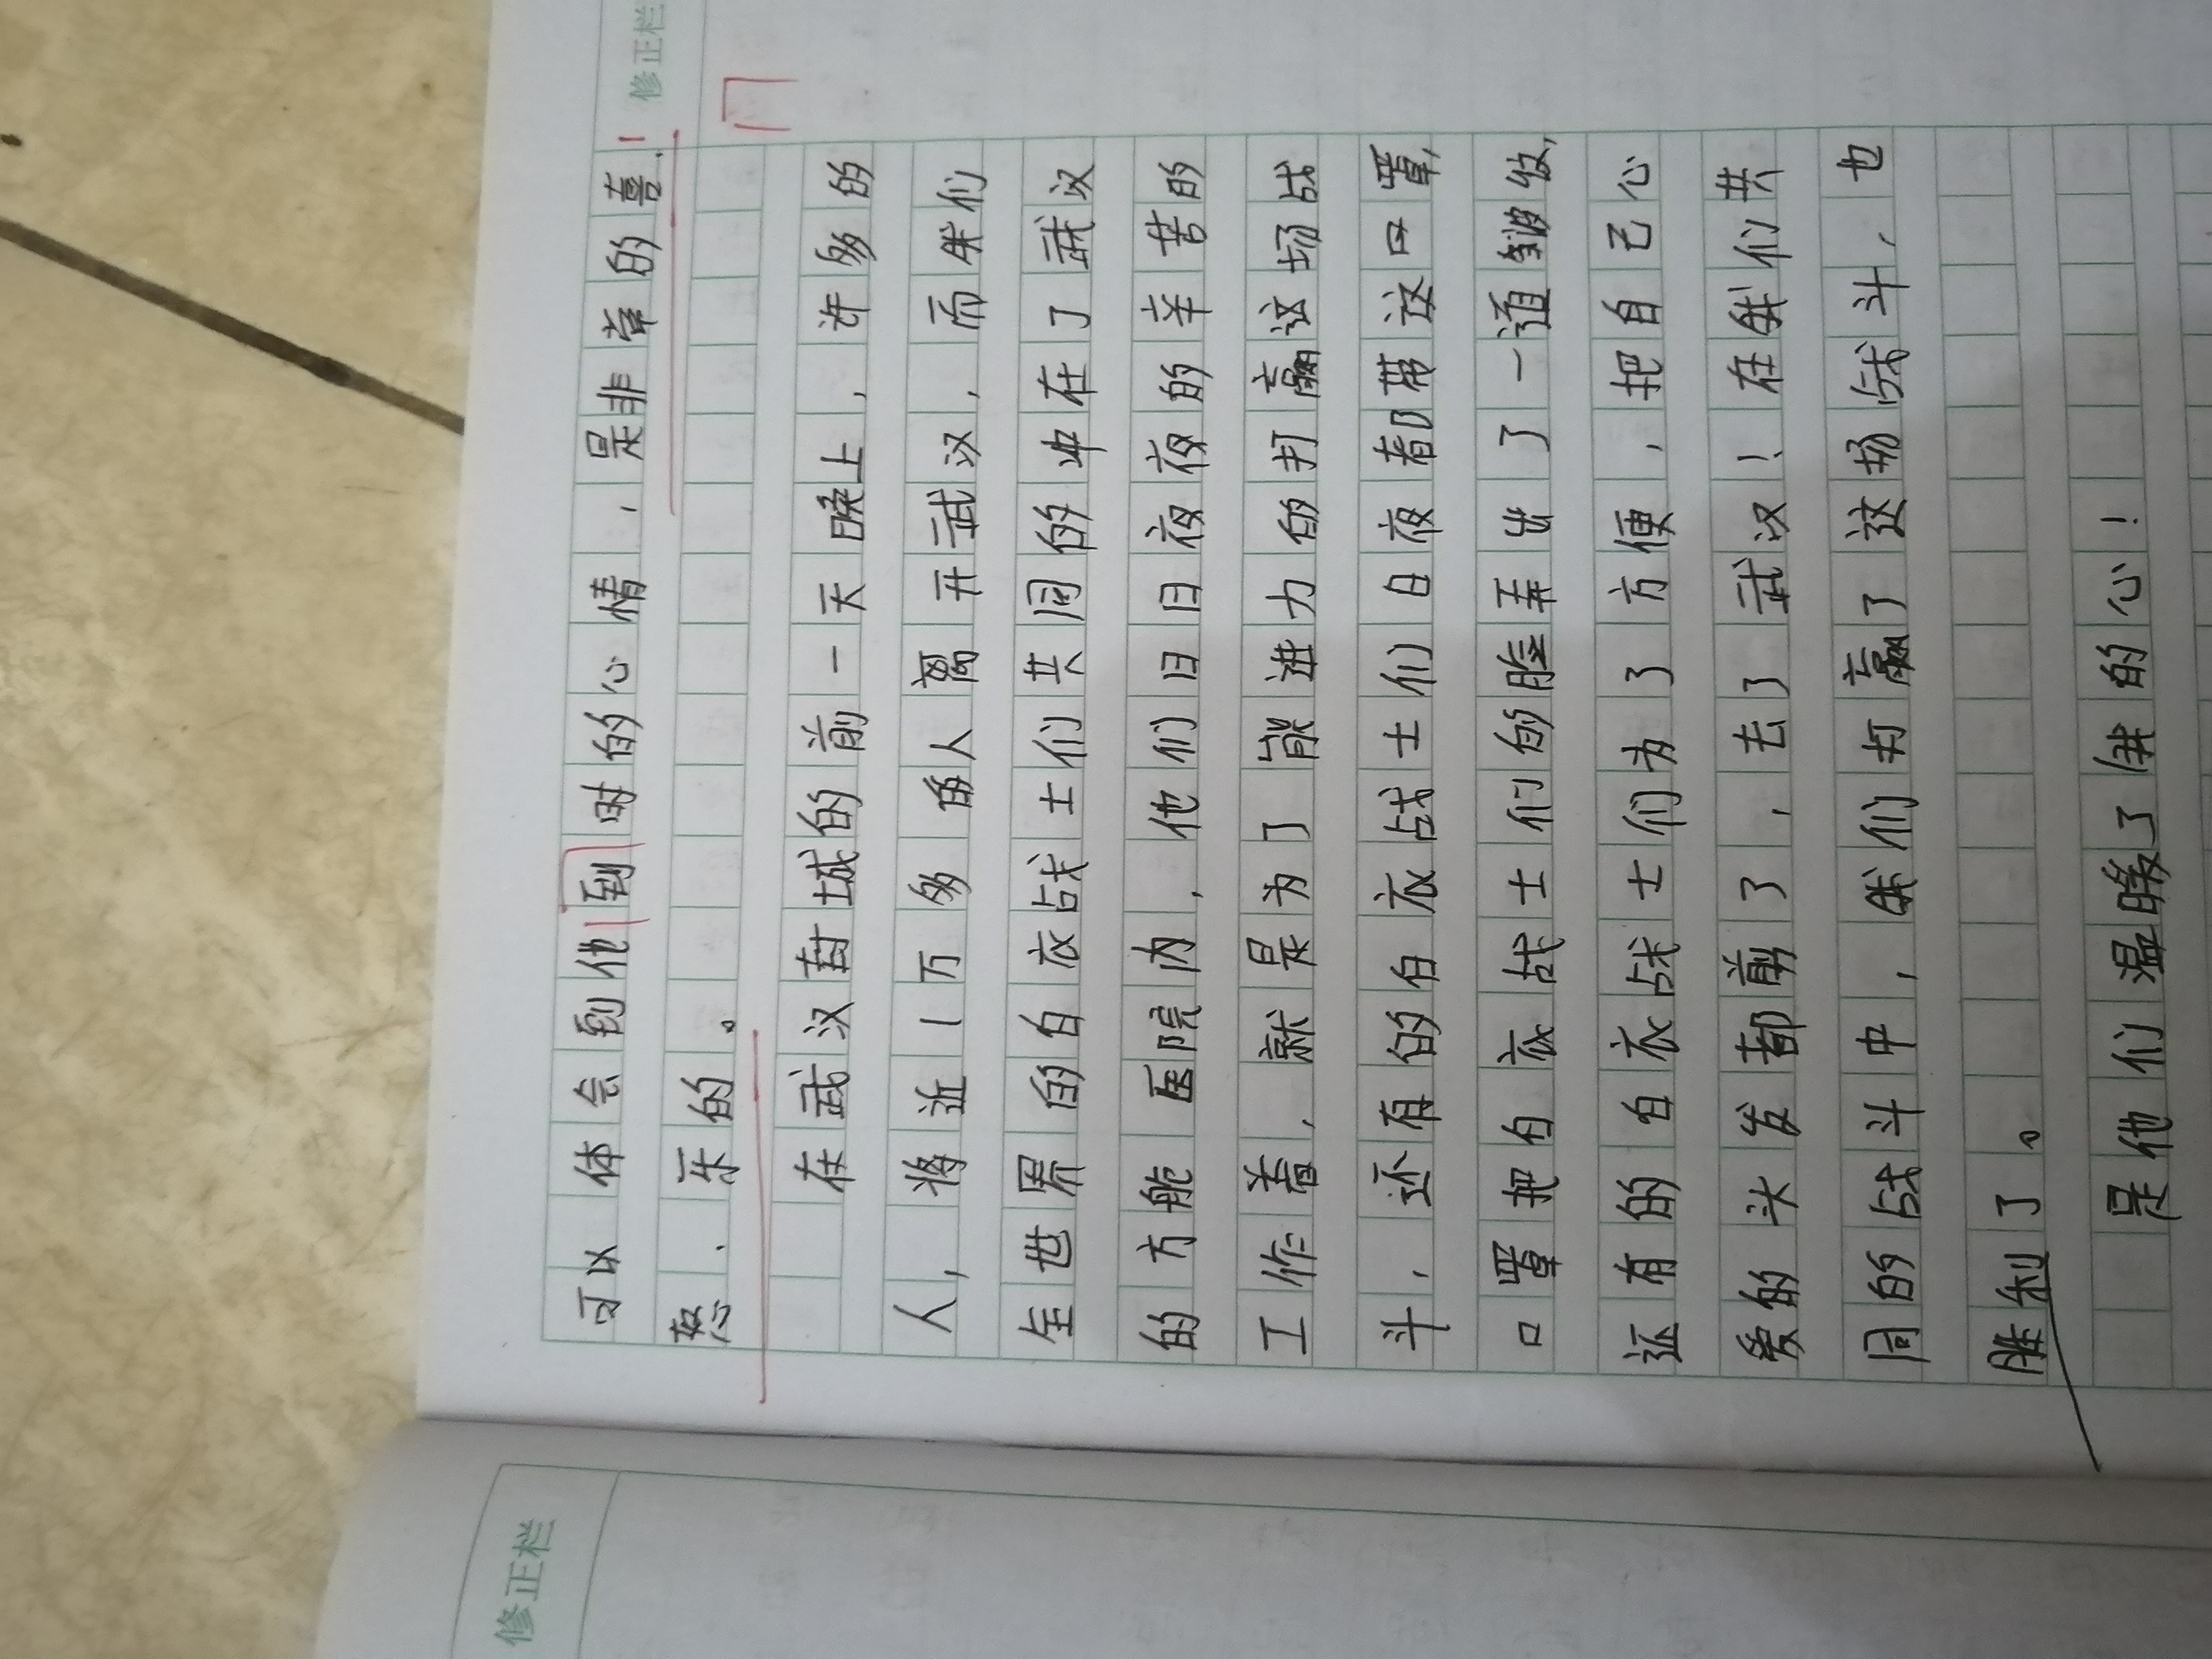 修正栏
可以体会到他到时的心情，是非常的喜、
怒、乐的。
在武汉封城的前一天晚上，许多的
人，将近1万多的人离开武汉，而我们
全世界的白衣战士们共同的冲在了武汉
的方舱医院内，他们日日夜夜的辛苦的
工作着，就是为了能进力的打赢这场战
斗，还有的白衣战士们日夜都带这口罩，
口罩把白衣战士们的脸弄出了一道皱纹，
还有的白衣战士们为了方便，把自己心
爱的头发都剪了，去了武汉！在我们共
同的战斗中，我们打赢了这场战斗，也
胜利了。
是他们温暖了我的心！
修正栏